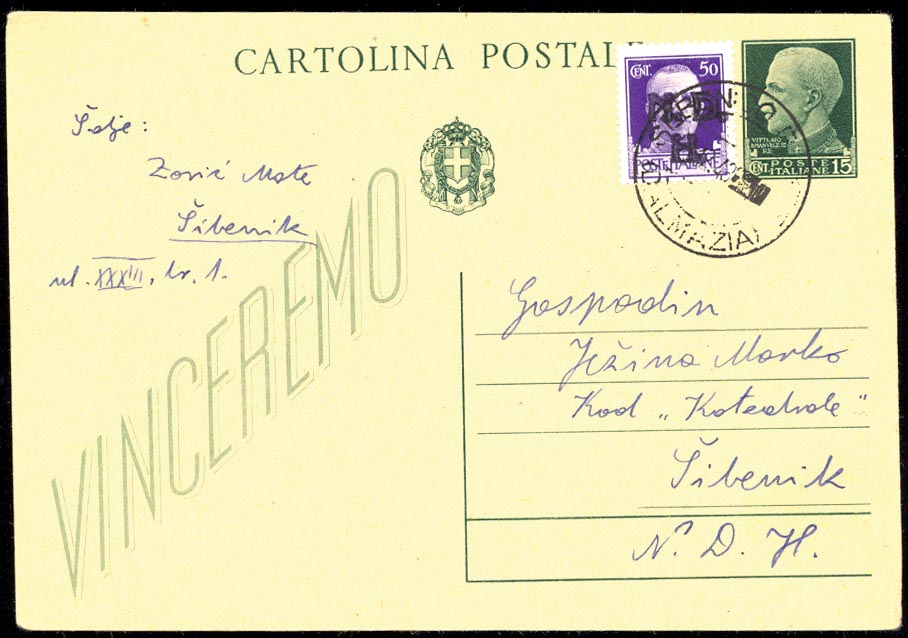 CARTOLINA POSTALE
CENT. 50
N.D.
H.
POSTE ITALIANE
VITT. EM. III
RE
POSTE
CENT. ITALIANE 15
(DALMAZIA)
Šalje:
Zorić Mate
Šibenik
ul. XXXIII, br. 1.
VINCEREMO
Gospodin
Ježina Marko
Kod „Katedrale"
Šibenik
N. D. H.